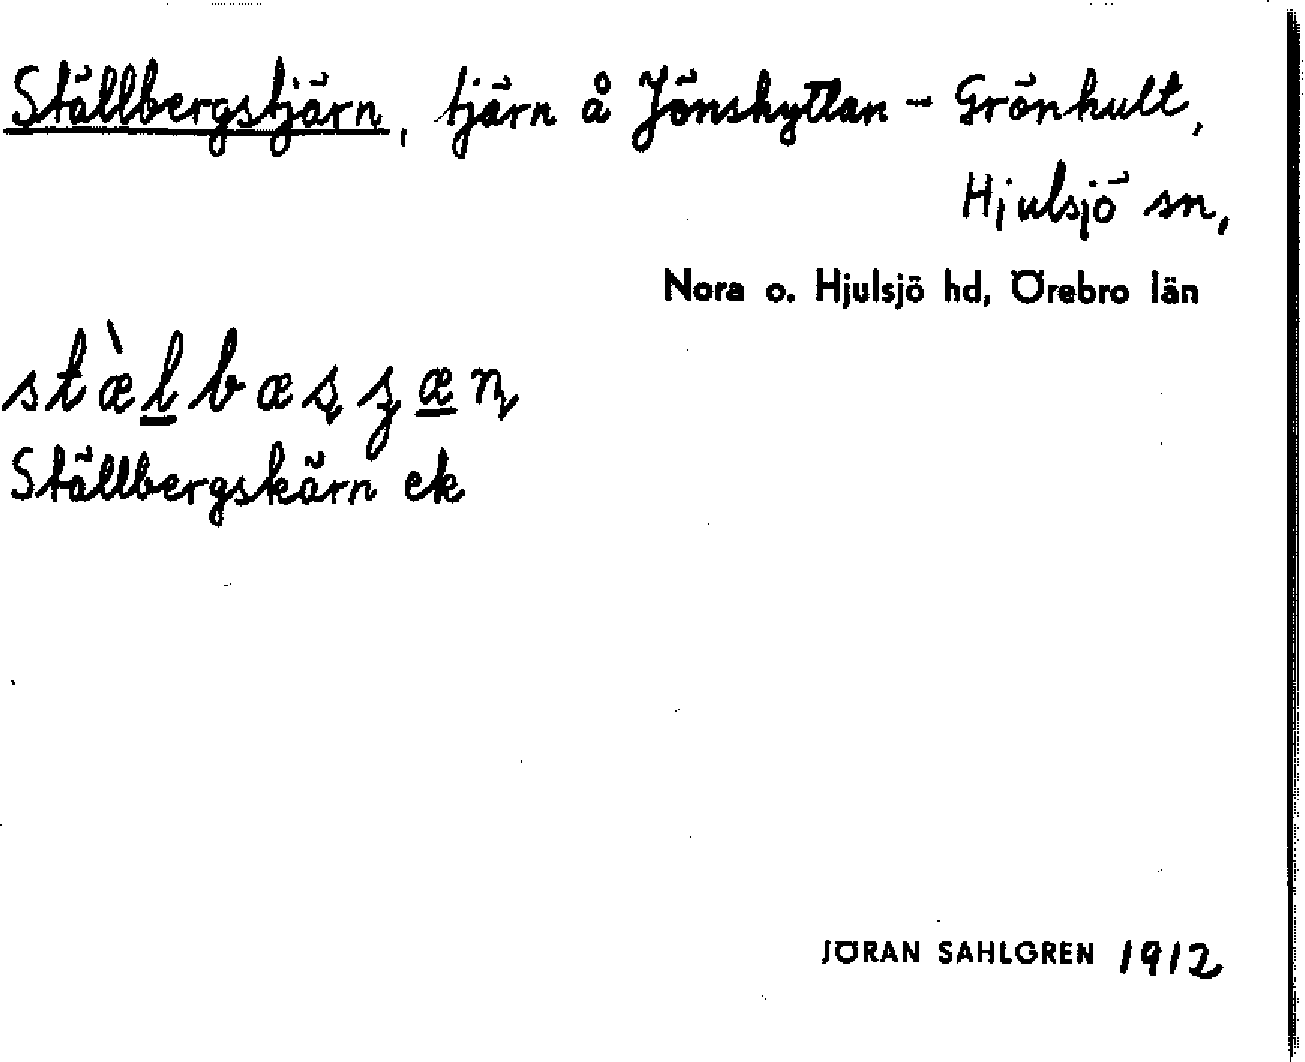 Ställbergstjärn, tjärn å Jönshyttan - Grönhult,
Hjulsjö sn,
Nora o. Hjulsjö hd, Örebro län
Ställbergskärn ek
JÖRAN SAHLGREN 1912